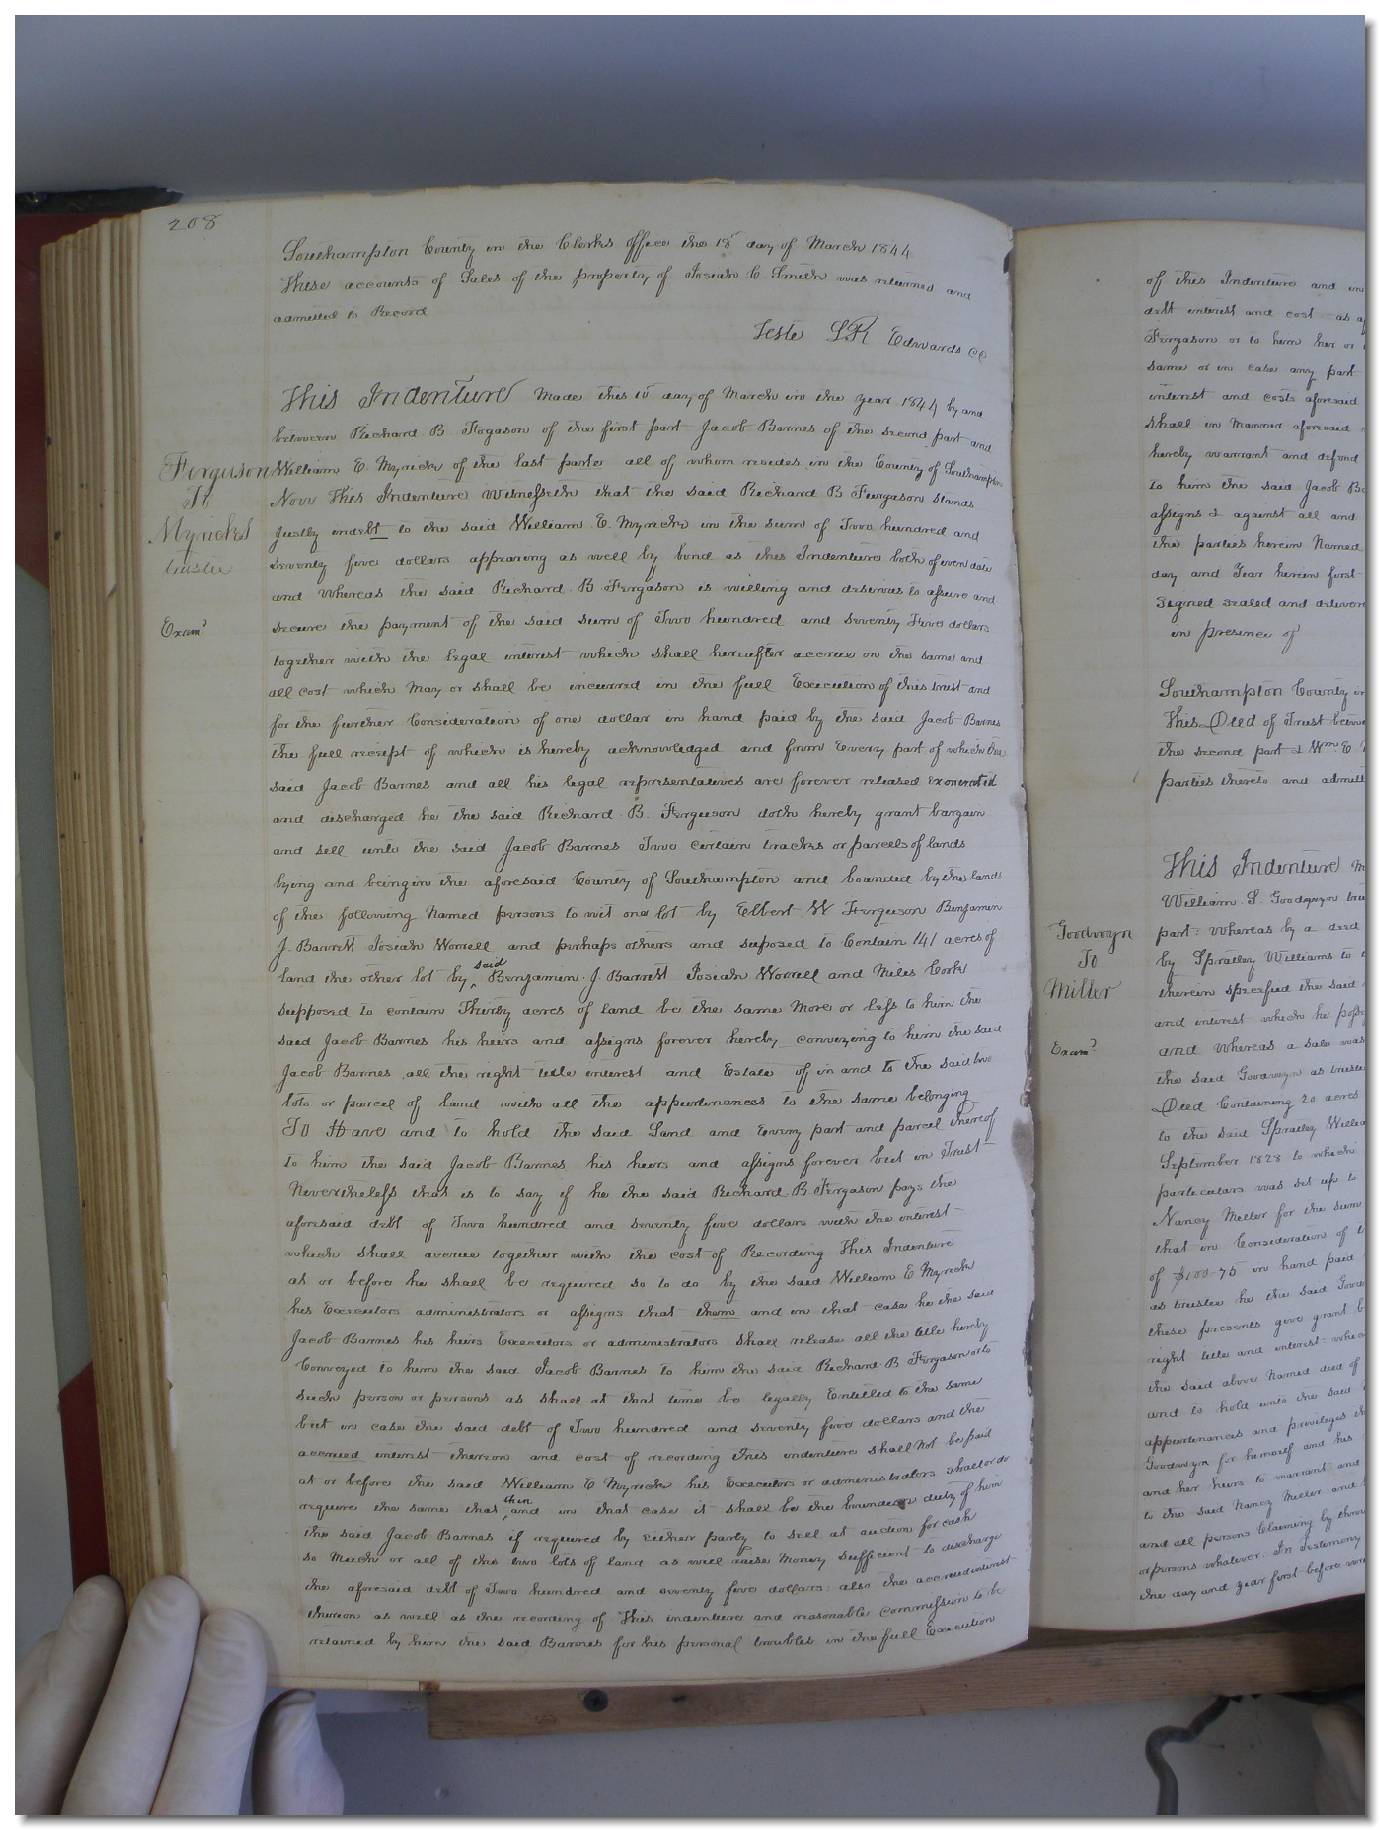 208
Southampton County in the Clerks office the 18th day of March 1844
These accounts of Sales of the property of Josiah C Smith was returned and
admitted to Record
Teste L R Edwards CC
Ferguson
To
Myrick's
trustee
Exam.d
This Indenture Made this 15 day of March in the year 1844 by and
between Richard B. Fergason of the first part Jacob Barnes of the second part and
William E. Myrick of the last parte all of whom resides in the County of Southampton
Now This Indenture Witnesseth that the said Richard B Fergason stands
justly indebt to the said William E. Myrick in the sum of Two hundred and
seventy five dollars appearing as well by bond as this Indenture both of even date
and Whereas the said Richard B Fergason is willing and desirous to assure and
secure the payment of the said sum of Two hundred and seventy Five dollars
together with the legal interest which shall hereafter accrue on the same and
all cost which may or shall be incurred in the full Execution of this trust and
for the further Consideration of one dollar in hand paid by the said Jacob Barnes
the full receipt of which is hereby acknowledged and from Every part of which the
said Jacob Barnes and all his legal representatives are forever released exonerated
and discharged he the said Richard B. Ferguson doth hereby grant bargain
and sell unto the said Jacob Barnes Two certain tracks or parcels of lands
lying and being in the aforesaid County of Southampton and bounded by the lands
of the following Named persons to wit one lot by Elbert W Ferguson Benjamin
J. Barrett Josiah Worrell and perhaps others and suposed to Contain 141 acres of
said
land the other lot by Benjamin J. Barrett Josiah Worrell and Miles Cook
supposed to contain Thirty acres of land be the same More or less to him the
said Jacob Barnes his heirs and assigns forever hereby conveying to him the said
Jacob Barnes all the right title interest and Estate of in and to the said two
lots or parcel of land with all the appurtenances to the same belonging
To Have and to hold the said Land and Every part and parcel thereof
to him the said Jacob Barnes his heirs and assigns forever but in Trust
Nevertheless that is to say if he the said Richard B. Fergason pays the
aforesaid debt of Two hundred and seventy five dollars with the interest
which shall accrue together with the cost of Recording This Indenture
at or before he shall be required so to do by the said William E Myrick
his Executors administrators or assigns that them and in that case he the said
Jacob Barnes his heirs Executors or administrators shall release all the title hereby
Conveyed to him the said Jacob Barnes to him the said Richard B Fergason or to
such person or persons as shall at that time be legally Entitled to the same
but in case the said debt of Two hundred and seventy five dollars and the
accrued interest thereon and cost of recording This indenture shall not be paid
at or before the said William E Myrick his Executors or administrators shall or do
then
require the same that and in that case it shall be the bounden duty of him
the said Jacob Barnes if required by Either party to sell at auction for cash
so Much or all of the two lots of land as will raise Money sufficient to discharge
the aforesaid debt of Two hundred and seventy five dollars also the accrued interest
thereon as well as the recording of This indenture and reasonable commission to be
retained by him the said Barnes for his personal troubles in the full Execution
of this Indenture and
debt interest and cost as
Fergason or to him her or
same or in case any part
interest and costs aforesaid
shall in Manner aforesaid
hereby warrant and defend
to him the said Jacob
assigns & against all and
the parties herein Named
day and Year herein first
Signed sealed and
in presince of
Southampton County in
This Deed of Trust
the second part & Wm. E
parties thereto and
Goodwyn
To
Miller
Exam.d
This Indenture
William S. Goodwyn
part: Whereas by a deed
by Spratley Williams to
therein specified the said
and interest which he
and Whereas a sale was
the said Goodwyn as trustee
Deed Containing 20 acres
to the said Spratley
September 1828 to which
particulars was set up to
Nancy Miller for the sum
that in Consideration of
of $100.75 in hand paid
as trustee he the said
these presents give grant
right title and interest
the said above Named deed of
and to hold unto the said
appurtenances and privileges
Goodwyn for himself and his
and her heirs to warrant and
to the said Nancy Miller and
and all persons Claiming by
or persons whatever. In testimony
the day and year first before